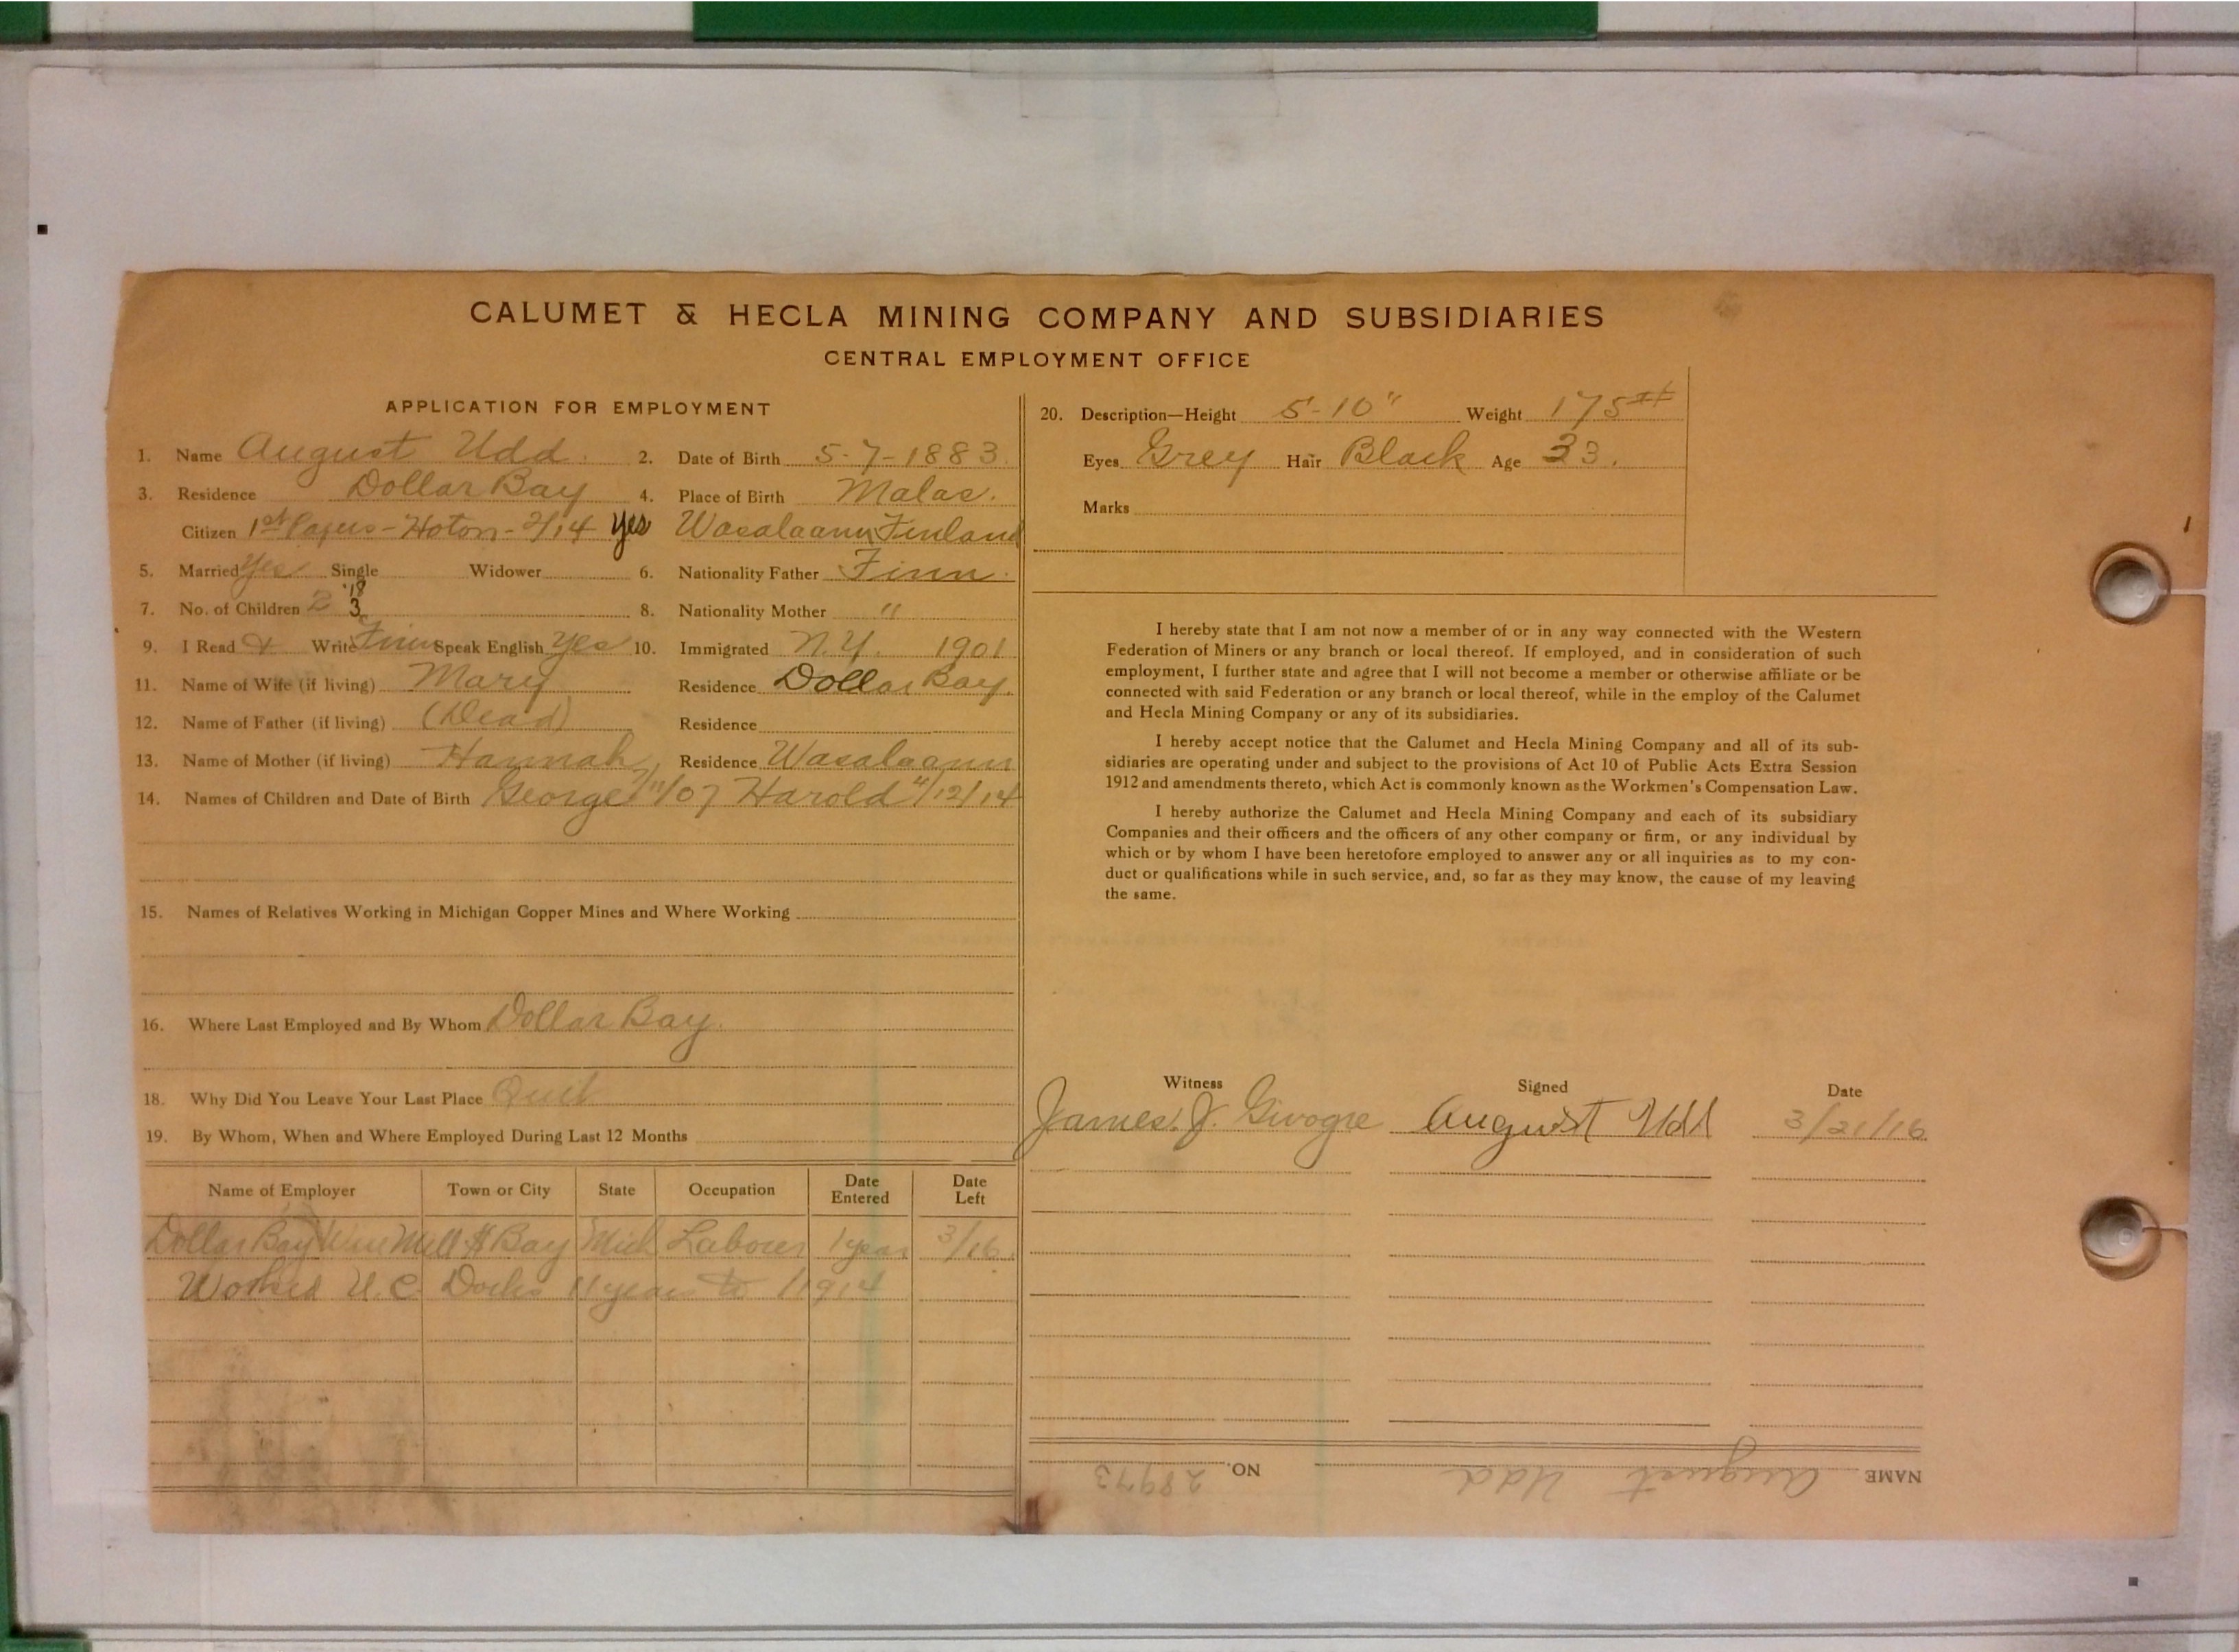 CALUMET & HECLA MINING COMPANY AND SUBSIDIARIES
CENTRAL EMPLOYMENT OFFICE
APPLICATION FOR EMPLOYMENT
1. Name August Udd. 2. Date of Birth 5-7-1883.
3. Residence Dollar Bay 4. Place of Birth Malax.
Citizen 1st Papers - Hoton - 2/14 Yes Wasalaann Finland
5. Married Yes Single Widower 6. Nationality Father Finn.
'18
7. No. of Children 2 3 8. Nationality Mother "
9. I Read & Write Finn Speak English Yes 10. Immigrated N.Y. 1901
11. Name of Wife (if living) Mary Residence Dollar Bay.
12. Name of Father (if living) (Dead) Residence
13. Name of Mother (if living) Hannah Residence Wasalaann
14. Names of Children and Date of Birth George /11/07 Harold 4/12/14
15. Names of Relatives Working in Michigan Copper Mines and Where Working
16. Where Last Employed and By Whom Dollar Bay.
18. Why Did You Leave Your Last Place Quit
19. By Whom, When and Where Employed During Last 12 Months
Name of Employer Town or City State Occupation Date Entered Date Left
Dollar Bay Wire Mill $ Bay Mich Laborer 1 year 3/16.
Worked U.C. Docks 11 years to 1914
20. Description—Height 5-10" Weight 175#
Eyes Grey Hair Black Age 33.
Marks
I hereby state that I am not now a member of or in any way connected with the Western
Federation of Miners or any branch or local thereof. If employed, and in consideration of such
employment, I further state and agree that I will not become a member or otherwise affiliate or be
connected with said Federation or any branch or local thereof, while in the employ of the Calumet
and Hecla Mining Company or any of its subsidiaries.
I hereby accept notice that the Calumet and Hecla Mining Company and all of its sub-
sidiaries are operating under and subject to the provisions of Act 10 of Public Acts Extra Session
1912 and amendments thereto, which Act is commonly known as the Workmen's Compensation Law.
I hereby authorize the Calumet and Hecla Mining Company and each of its subsidiary
Companies and their officers and the officers of any other company or firm, or any individual by
which or by whom I have been heretofore employed to answer any or all inquiries as to my con-
duct or qualifications while in such service, and, so far as they may know, the cause of my leaving
the same.
Witness Signed Date
James. J. Givogre August Udd 3/21/16
NAME August Udd NO. 28973